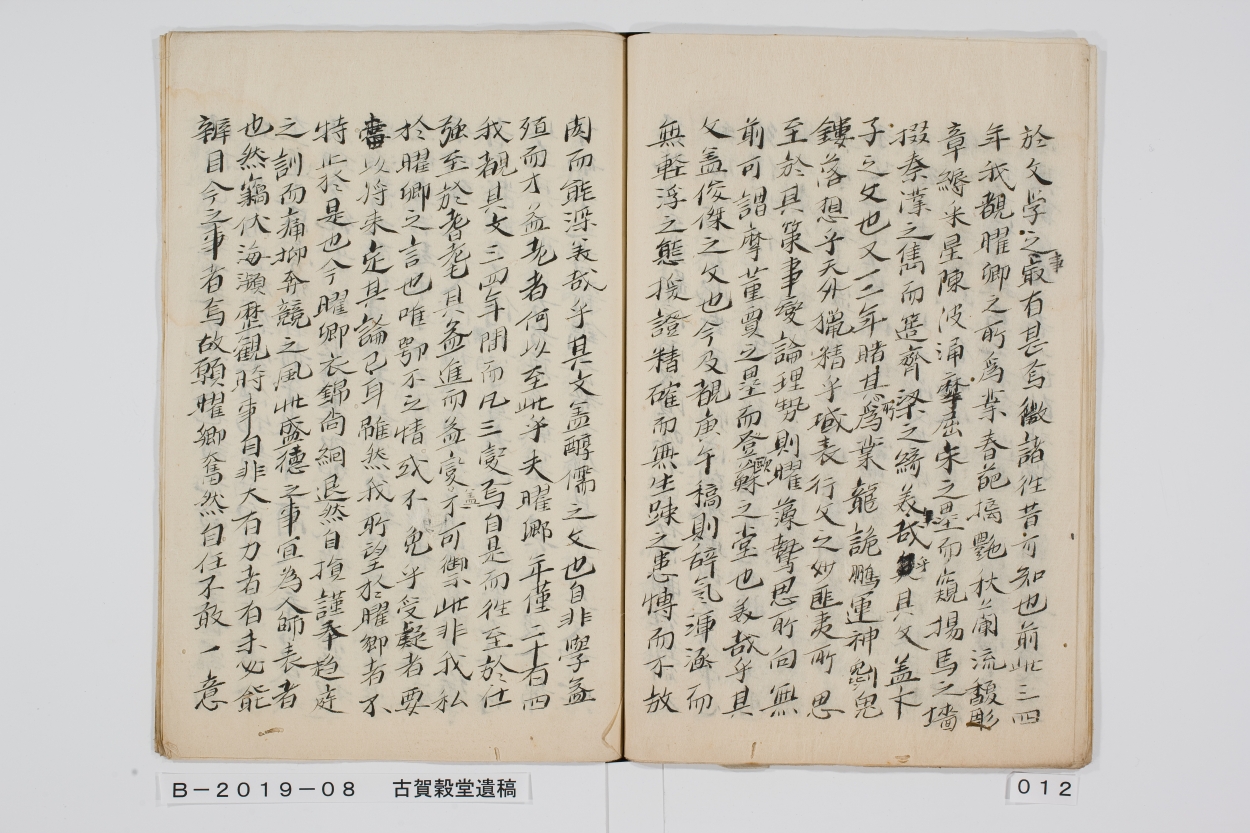 於文学之事最有甚焉徴諸往昔可知也前此三四
年我観曜卿之所為業春葩摛艶秋蘭流馥彫
章縟采星陳波涌摩屈宋之塁而窺揚馬之墻
掇秦漢之雋而選齊梁之綺美哉乎其文蓋才
子之文也又一二年睹其所為業龍詭鵬運神劌鬼
鏤落想乎天外獵精乎域表行文之妙匪夷所思
至於其策事変論理勢則曜藻騁思所向無
前可謂摩董賈之塁而登歐蘇之堂也美哉乎其
文蓋俊傑之文也今及観庚午稿則辞気渾涵而
無軽浮之態援證精確而無生踈之患博而不放
閎而能深美哉乎其文蓋醇儒之文也自非學益
殖而才益老者何以至此乎夫曜卿年僅二十有四
我観其文三四年間而凡三変焉自是而徃至於仕
強至於耆耄其益進而益変蓋不可禦此非我私
於曜卿之言也唯卾不之情或不免乎受疑者要
書以将来定其論已耳雖然我所望於曜卿者不
特止於是也今曜卿衣錦尚絅退然自損謹奉趨庭
之訓而痛抑奔競之風此盛徳之事宜為人師表者
也然竊伏海瀕歴観時事自非大有力者有未必能
辨目今之事者焉故願曜卿奮然自任不敢一意
B-2019-08 古賀穀堂遺稿
012